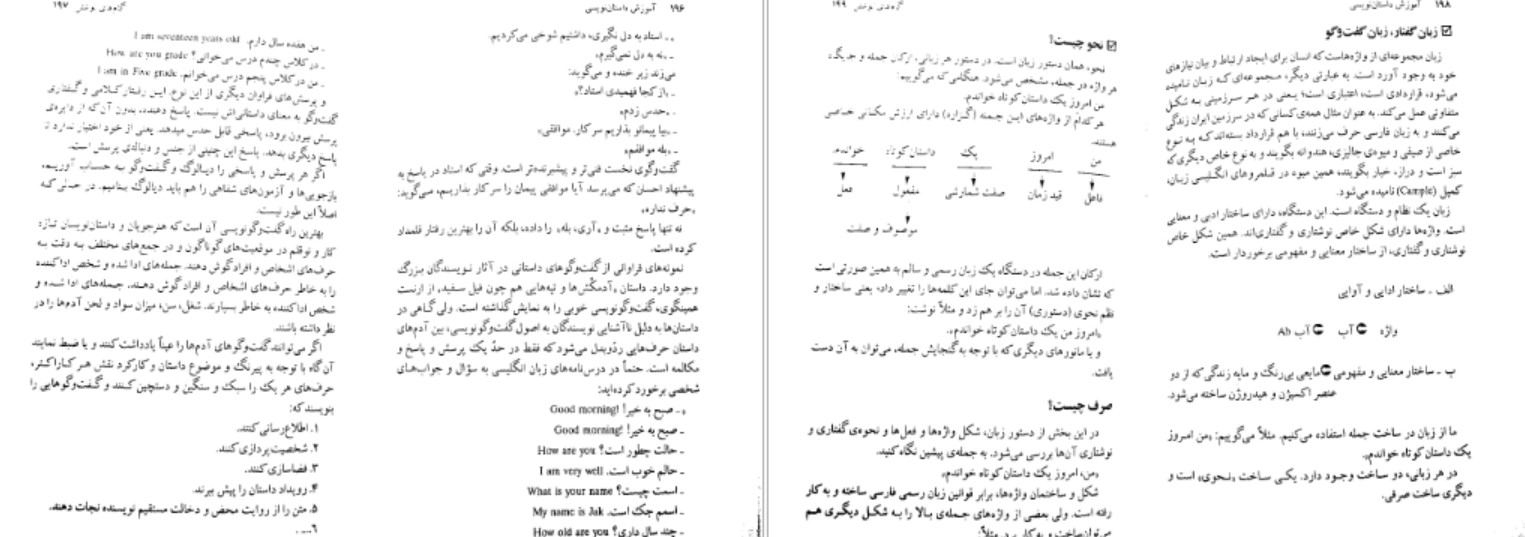 ۱۹۶ آموزش داستان‌نویسی
«ـ استاد به دل نگیری، داشتیم شوخی می‌کردیم.
ـ نه به دل نمی‌گیرم.»
می‌زند زیر خنده و می‌گوید:
ـ «از کجا فهمیدی استاد؟»
ـ «حدس زدم.»
ـ «بیا پیمانو بذاریم سر کار. موافقی»
ـ «بله موافقم»
گفت‌وگوی نخست فنی‌تر و پیشبرنده‌تر است. وقتی که استاد در پاسخ به
پیشنهاد احسان که می‌پرسد آیا موافقی پیمان را سر کار بذاریم، می‌گوید:
«حرف نداره»
نه تنها پاسخ مثبت و «آری، بله» را داده، بلکه آن را بهترین رفتار قلمداد
کرده است.
نمونه‌های فراوانی از گفت‌وگوهای داستانی در آثار نویسندگان بزرگ
وجود دارد. داستان «آدمکش‌ها و تپه‌هایی هم چون فیل سفید» از ارنست
همینگوی، گفت‌وگونویسی خوبی را به نمایش گذاشته است. ولی گاهی در
داستان‌ها به دلیل ناآشنایی نویسندگان به اصول گفت‌وگونویسی، بین آدم‌های
داستان حرف‌هایی ردّوبدل می‌شود که فقط در حدّ یک پرسش و پاسخ و
مکالمه است. حتماً در درس‌نامه‌های زبان انگلیسی به سؤال و جواب‌های
شخصی برخورد کرده‌اید:
«ـ صبح به خیر! Good morning!
ـ صبح به خیر! Good morning!
ـ حالت چطور است؟ How are you
ـ حالم خوب است. I am very well
ـ اسمت چیست؟ What is your name
ـ اسمم جک است. My name is Jak
ـ چند سال داری؟ How old are you
۱۹۷
ـ من هفده سال دارم. I am seventeen years old
ـ در کلاس چندم درس می‌خوانی؟ How are you grade
ـ من در کلاس پنجم درس می‌خوانم. I am in Five grade
و پرسش‌های فراوان دیگری از این نوع. این رفتار کلامی و گفتاری
گفت‌وگو به معنای داستانی‌اش نیست. پاسخ دهنده، بدون آن‌که از دایره‌ی
پرسش بیرون برود، پاسخی قابل حدس میدهد. یعنی از خود اختیار ندارد تا
پاسخ دیگری بدهد. پاسخ این چنینی از جنس و دنباله‌ی پرسش است.
اگر هر پرسش و پاسخی را دیالوگ و گفت‌وگو به حساب آوریم،
بازجویی‌ها و آزمون‌های شفاهی را هم باید دیالوگ بنامیم. در حالی که
اصلاً این طور نیست.
بهترین راه گفت‌وگونویسی آن است که هنرجویان و داستان‌نویسان تازه
کار و نوقلم در موقعیت‌های گوناگون و در جمع‌های مختلف به دقت به
حرف‌های اشخاص و افراد گوش دهند. جمله‌های ادا شده و شخص اداکننده
را به خاطر حرف‌های اشخاص و افراد گوش دهند. جمله‌های ادا شده و
شخص اداکننده به خاطر بسپارند. شغل، سن، میزان سواد و لحن آدم‌ها را در
نظر داشته باشند.
اگر می‌توانند گفت‌وگوهای آدم‌ها را عیناً یادداشت کنند و یا ضبط نمایند
آن‌گاه با توجه به پیرنگ و موضوع داستان و کارکرد نقش هر کاراکتر،
حرف‌های هر یک را سبک و سنگین و دستچین کنند و گفت‌وگوهایی را
بنویسند که:
۱. اطلاع‌رسانی کنند.
۲. شخصیت‌پردازی کنند.
۳. فضاسازی کنند.
۴. رویداد داستان را پیش ببرند.
۵. متن را از روایت محض و دخالت مستقیم نویسنده نجات دهند.
۶. ...
۱۹۸ آموزش داستان‌نویسی
زبان گفتار، زبان گفت‌وگو
زبان مجموعه‌ای از واژه‌هاست که انسان برای ایجاد ارتباط و بیان نیازهای
خود به وجود آورد است. به عبارتی دیگر، مجموعه‌ای که زبان نامیده
می‌شود، قراردادی است، اعتباری است؛ یعنی در هر سرزمینی به شکل
متفاوتی عمل می‌کند. به عنوان مثال همه‌ی کسانی که در سرزمین ایران زندگی
می‌کنند و به زبان فارسی حرف می‌زنند، با هم قرارداد بسته‌اند که به نوع
خاصی از صیفی و میوه‌ی جالیزی، هندوانه بگویند و به نوع خاص دیگری که
سبز است و دراز، خیار بگویند، همین میوه در قلمروهای انگلیسی زبان،
کمپل (Cample) نامیده می‌شود.
زبان یک نظام و دستگاه است. این دستگاه، دارای ساختار ادبی و معنایی
است. واژه‌ها دارای شکل خاص نوشتاری و گفتاری‌اند. همین شکل خاص
نوشتاری و گفتاری، از ساختار معنایی و مفهومی برخوردار است.
الف ـ ساختار ادایی و آوایی
واژه آب آب Ab
ب ـ ساختار معنایی و مفهومی مایعی بی‌رنگ و مایه زندگی که از دو
عنصر اکسیژن و هیدروژن ساخته می‌شود.
ما از زبان در ساخت جمله استفاده می‌کنیم. مثلاً می‌گوییم: «من امروز
یک داستان کوتاه خواندم.»
در هر زبانی، دو ساخت وجود دارد. یکی ساخت «نحوی» است و
دیگری ساخت صرفی.
۱۹۹
نحو چیست؟
نحو، همان دستور زبان است. در دستور هر زبانی، ارکان جمله و جایگاه
هر واژه در جمله، مشخص می‌شود. هنگامی که می‌گوییم:
من امروز یک داستان کوتاه خواندم.
هر کدام از واژه‌های این جمله (گزاره) دارای ارزش مکانی خاصی
هستند.
من امروز یک داستان کوتاه خواندم.
فاعل قید زمان صفت شمارشی مفعول فعل
موصوف و صفت
ارکان این جمله در دستگاه یک زبان رسمی و سالم به همین صورتی است
که نشان داده شد. اما می‌توان جای این کلمه‌ها را تغییر داد، یعنی ساختار و
نظم نحوی (دستوری) آن را بر هم زد و مثلاً نوشت:
«امروز من یک داستان کوتاه خواندم.»
و یا مانورهای دیگری که با توجه به گنجایش جمله، می‌توان به آن دست
یافت.
صرف چیست؟
در این بخش از دستور زبان، شکل واژه‌ها و فعل‌ها و نحوه‌ی گفتاری و
نوشتاری آن‌ها بررسی می‌شود. به جمله‌ی پیشین نگاه کنید.
«من، امروز یک داستان کوتاه خواندم»
شکل و ساختمان واژه‌ها، برابر قوانین زبان رسمی فارسی ساخته و به کار
رفته است. ولی بعضی از واژه‌های جمله‌ی بالا را به شکل دیگری هم
می‌توان ساخت و به کار برد. مثلاً: